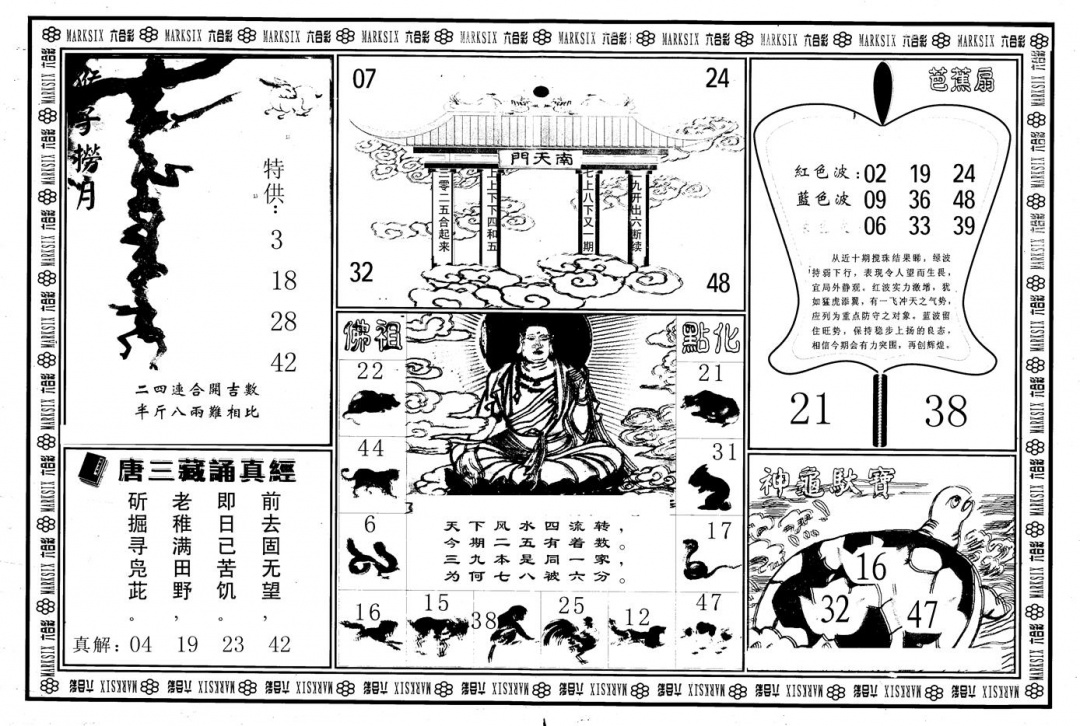 MARKSIX 六合彩 MARKSIX 六合彩 MARKSIX 六合彩 MARKSIX 六合彩 MARKSIX 六合彩 MARKSIX 六合彩 MARKSIX 六合彩 MARKSIX 六合彩 MARKSIX 六合彩 MARKSIX 六合彩
猴子撈月
特供：
3
18
28
42
二四連合開吉數
半斤八兩難相比
07
24
南天門
三零二五合起來
上上下下四和五
七上八下又一期
九开出六断续
32
48
芭蕉扇
紅色波：02 19 24
藍色波 09 36 48
06 33 39
从近十期搅珠结果睇，绿波
持弱下行，表现令人望而生畏，
宜局外静观。红波实力激增，犹
如猛虎添翼，有一飞冲天之气势，
应列为重点防守之对象。蓝波留
住旺势，保持稳步上扬的良态，
相信今期会有力突围，再创辉煌。
21
38
佛祖
點化
22
44
6
16
15
38
25
12
47
17
31
21
天下风水四流转，
今期二五有着数。
三九本是同一家，
为何七八被六分。
唐三藏誦真經
前去固无望，
即日已苦饥。
老稚满田野，
斫掘寻凫茈。
真解：04 19 23 42
神龜馱寶
16
32
47